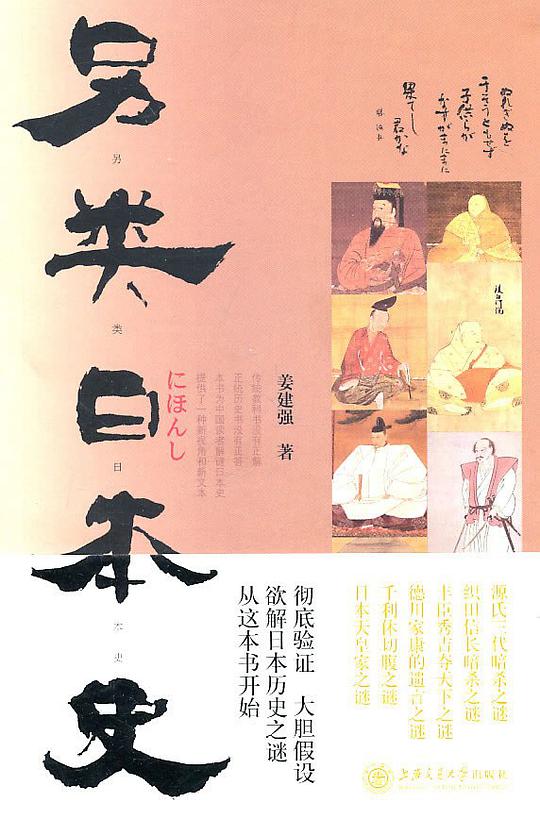 另类日本史
另
类
日
本
史
にほんし
姜建强 著
传统教科书没有正解
正统历史书没有正答
本书为中国读者解谜日本史
提供了一种新视角和新文本
ぬれぎぬを
子供らが
果てし
君かな
彻底验证 大胆假设
欲解日本历史之谜
从这本书开始
源氏三代暗杀之谜
织田信长暗杀之谜
丰臣秀吉夺天下之谜
德川家康的遗言之谜
千利休切腹之谜
日本天皇家之谜
上海交通大学出版社